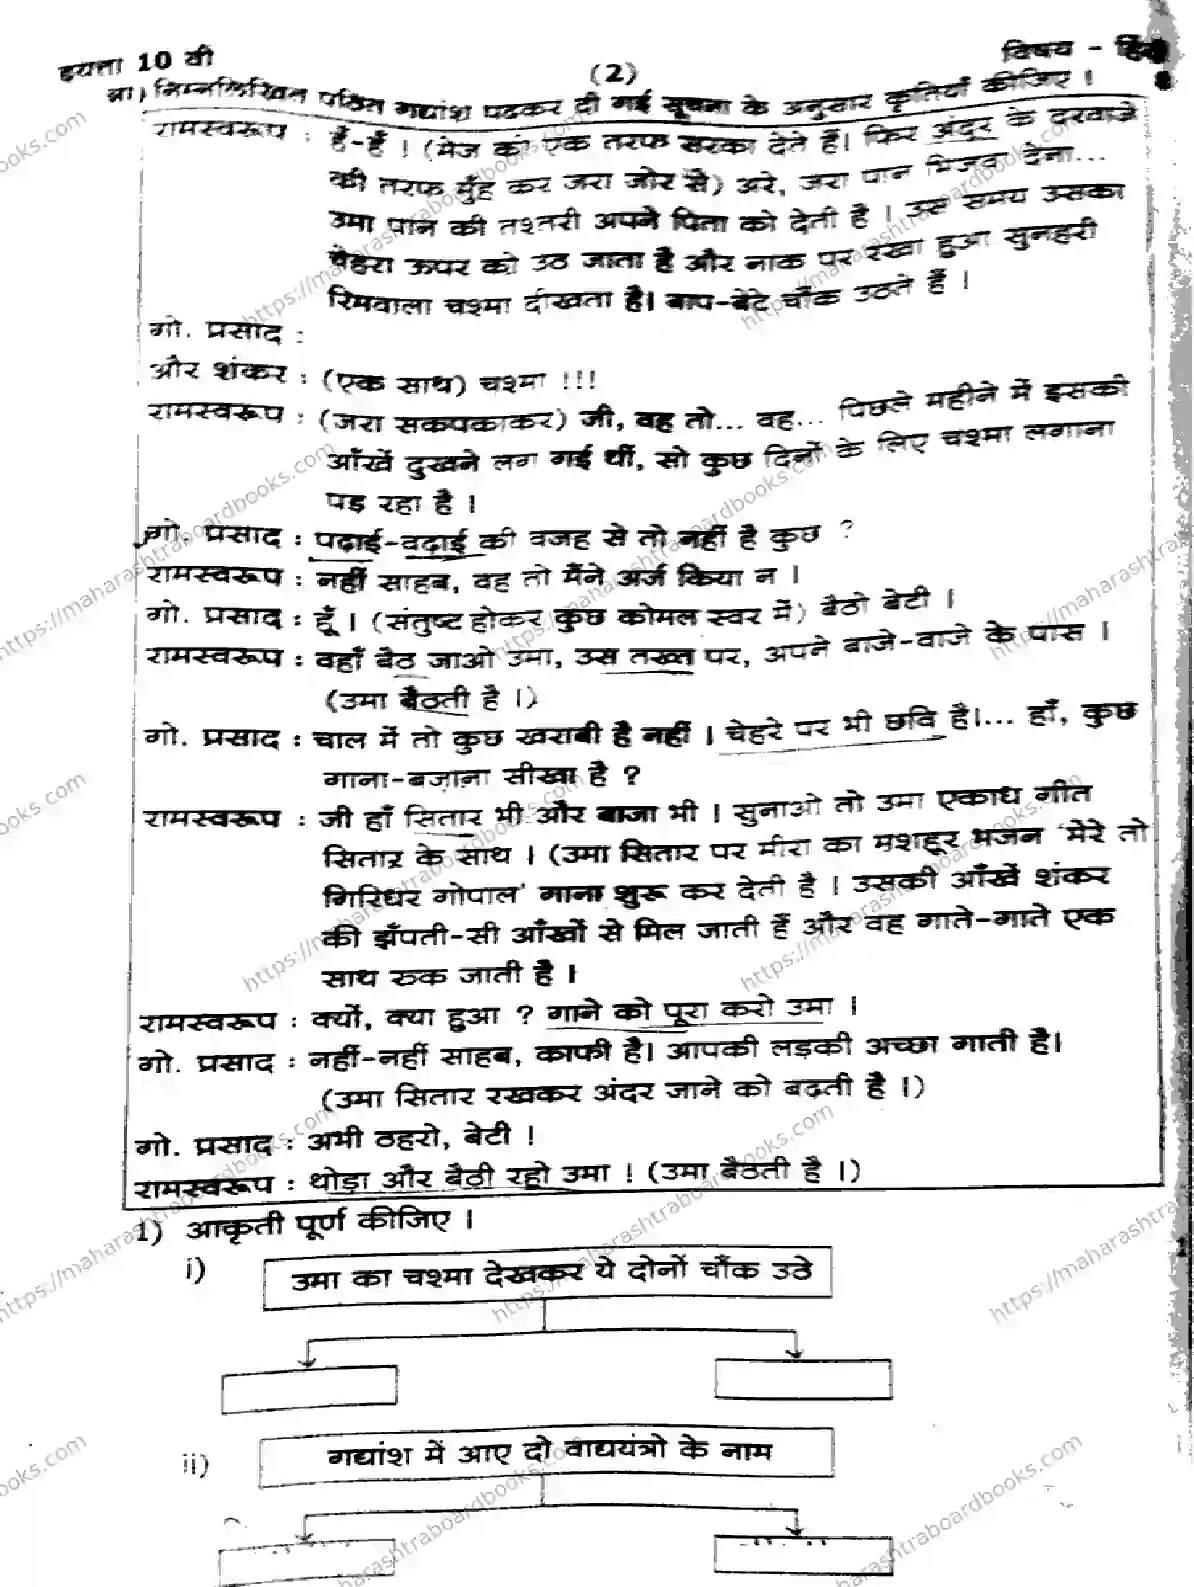 इयत्ता 10 वी
(2)
विषय - हिंदी
आ) निम्नलिखित पठित गद्यांश पढकर दी गई सूचना के अनुसार कृतियाँ कीजिए।
रामस्वरूप : हँ-हँ ! (मेज को एक तरफ सरका देते हैं। फिर अंदर के दरवाजे
की तरफ मुँह कर जरा जोर से) अरे, जरा पान भिजवा देना...
उमा पान की तश्तरी अपने पिता को देती है । उस समय उसका
चेहरा ऊपर को उठ जाता है और नाक पर रखा हुआ सुनहरी
रिमवाला चश्मा दीखता है। बाप-बेटे चौंक उठते हैं ।
गो. प्रसाद :
और शंकर : (एक साथ) चश्मा !!!
रामस्वरूप : (जरा सकपकाकर) जी, वह तो... वह... पिछले महीने में इसकी
आँखें दुखने लग गई थीं, सो कुछ दिनों के लिए चश्मा लगाना
पड़ रहा है ।
गो. प्रसाद : पढ़ाई-वढ़ाई की वजह से तो नहीं है कुछ ?
रामस्वरूप : नहीं साहब, वह तो मैंने अर्ज किया न ।
गो. प्रसाद : हूँ । (संतुष्ट होकर कुछ कोमल स्वर में) बैठो बेटी ।
रामस्वरूप : वहाँ बैठ जाओ उमा, उस तख्त पर, अपने बाजे-वाजे के पास ।
(उमा बैठती है ।)
गो. प्रसाद : चाल में तो कुछ खराबी है नहीं । चेहरे पर भी छवि है।... हाँ, कुछ
गाना-बजाना सीखा है ?
रामस्वरूप : जी हाँ सितार भी और बाजा भी । सुनाओ तो उमा एकाध गीत
सितार के साथ । (उमा सितार पर मीरा का मशहूर भजन 'मेरे तो
गिरिधर गोपाल' गाना शुरू कर देती है । उसकी आँखें शंकर
की झेंपती-सी आँखों से मिल जाती हैं और वह गाते-गाते एक
साथ रुक जाती है ।
रामस्वरूप : क्यों, क्या हुआ ? गाने को पूरा करो उमा ।
गो. प्रसाद : नहीं-नहीं साहब, काफी है। आपकी लड़की अच्छा गाती है।
(उमा सितार रखकर अंदर जाने को बढ़ती है ।)
गो. प्रसाद : अभी ठहरो, बेटी !
रामस्वरूप : थोड़ा और बैठी रहो उमा ! (उमा बैठती है ।)
1) आकृती पूर्ण कीजिए ।
i) उमा का चश्मा देखकर ये दोनों चौंक उठे
ii) गद्यांश में आए दो वाद्ययंत्रो के नाम
https://maharashtraboardbooks.com